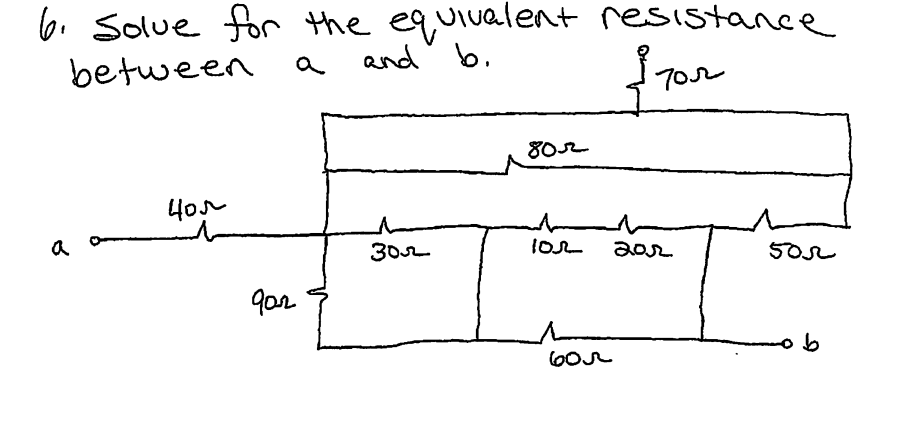 6. Solve for the equivalent resistance
between a and b.
70Ω
80Ω
40Ω
a
30Ω
10Ω
20Ω
50Ω
90Ω
60Ω
b